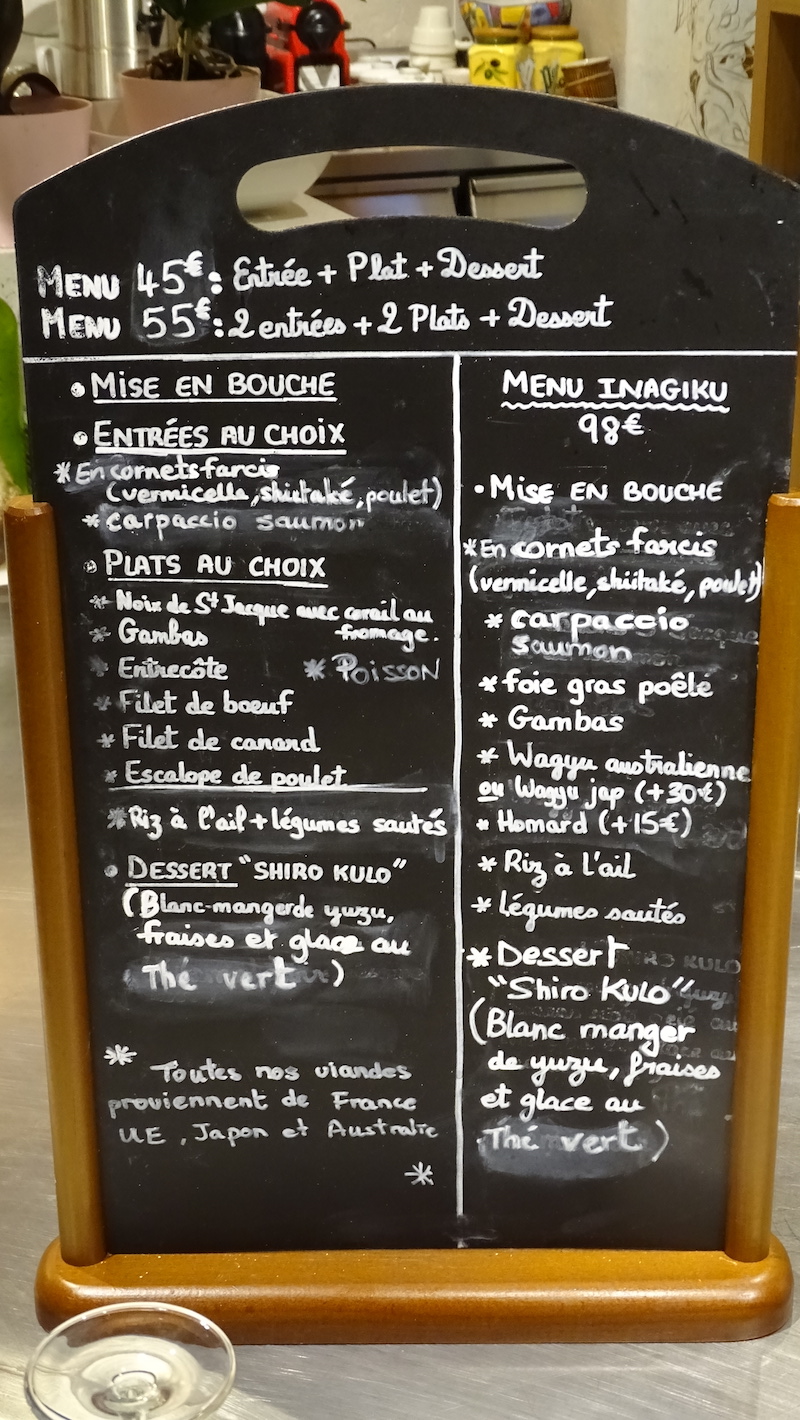 MENU 45€: Entrée + Plat + Dessert
MENU 55€: 2 entrées + 2 Plats + Dessert
• MISE EN BOUCHE
• ENTRÉES AU CHOIX
* En cornets farcis
(vermicelle, shiitaké, poulet)
* carpaccio saumon
• PLATS AU CHOIX
* Noix de St Jacque avec corail au
fromage.
* Gambas
* Entrecôte * POISSON
* Filet de bœuf
* Filet de canard
* Escalope de poulet
* Riz à l'ail + légumes sautés
• DESSERT "SHIRO KULO"
(Blanc-manger de yuzu,
fraises et glace au
Thé vert)
* Toutes nos viandes
proviennent de France
UE, Japon et Australie
*
MENU INAGIKU
98€
• MISE EN BOUCHE
* En cornets farcis
(vermicelle, shiitaké, poulet)
* carpaccio
saumon
* foie gras poêlé
* Gambas
* Wagyu australienne
ou Wagyu jap (+30€)
* Homard (+15€)
* Riz à l'ail
* Légumes sautés
* Dessert
"Shiro KULO"
(Blanc manger
de yuzu, fraises
et glace au
Thé vert)